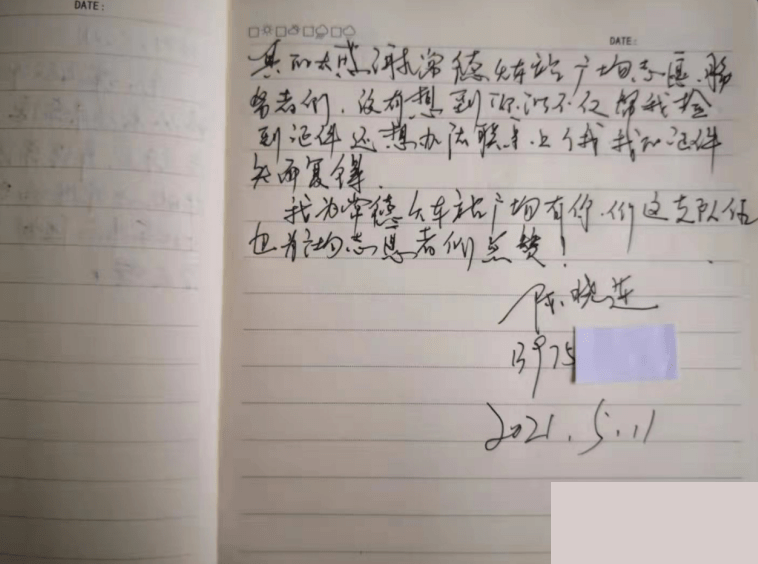 DATE:
DATE:
真的太感谢常德火车站广场志愿服
务者们，没有想到你们不仅帮我捡
到证件还想办法联系上了我我的证件
失而复得。
我为常德火车站广场有你们这支队伍
也为广场志愿者们点赞！
陈晓莲
13975
2021.5.11